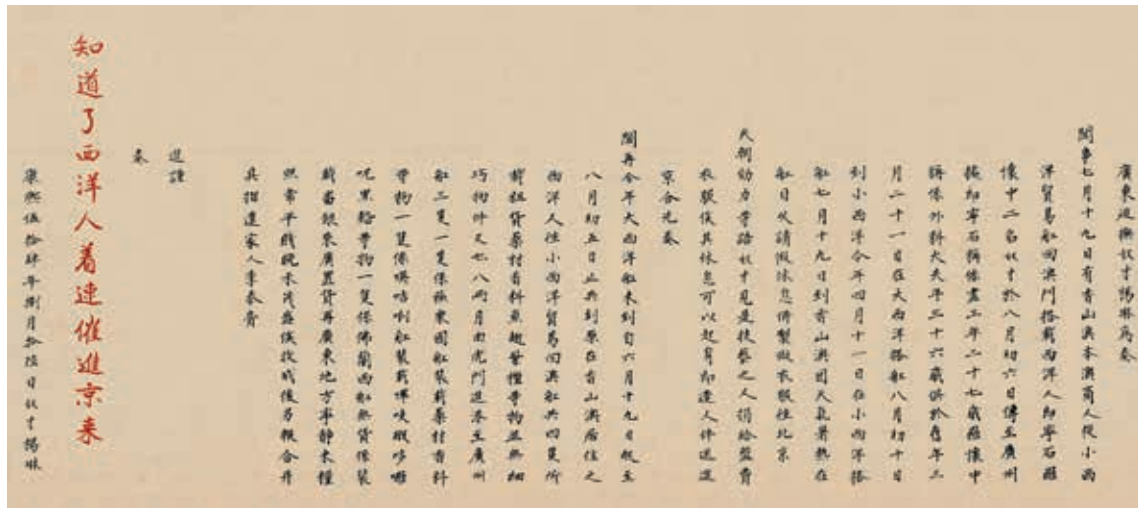 廣東巡撫奴才楊琳為奏
聞事七月十九日有香山澳本澳商人從小西
洋貿易舡回澳門搭載西洋人郎寧石羅
懷中二名奴才於八月初六日傳至廣州
據郎寧石稱係畫工年二十七歲羅懷中
稱係外科大夫年三十六歲俱於舊年三
月二十一日在大西洋搭舡八月初十日
到小西洋今年四月十一日在小西洋搭
舡七月十九日到香山澳因天氣暑熱在
舡日久請假休息併製做衣服往北京
天朝効力等語奴才見是技藝之人捐給盤費
衣服俟其休息可以起身即遣人伴送進
京合先奏
聞再今年大西洋舡未到自六月十九日起至
八月初五日止共到原在香山澳居住之
西洋人往小西洋貿易回澳舡共四隻所
載貨藥材香料魚翅紫檀等物並無細
巧物件又七八兩月由虎門進至廣州
舡三隻一隻係東國舡裝載藥材香料
等物一隻係暎咭唎舡裝載嗶吱緞哆囉
呢黑鉛等物一隻係佛蘭西舡無貨俱裝
載番銀來廣置貨再廣東地方寧靜米糧
照常平賤晚禾茂盛俟收成後另報合并
具摺遣家人李泰齎
進謹
奏
知道了西洋人着速催進京來
康熙伍拾肆年捌月拾陸日奴才楊琳